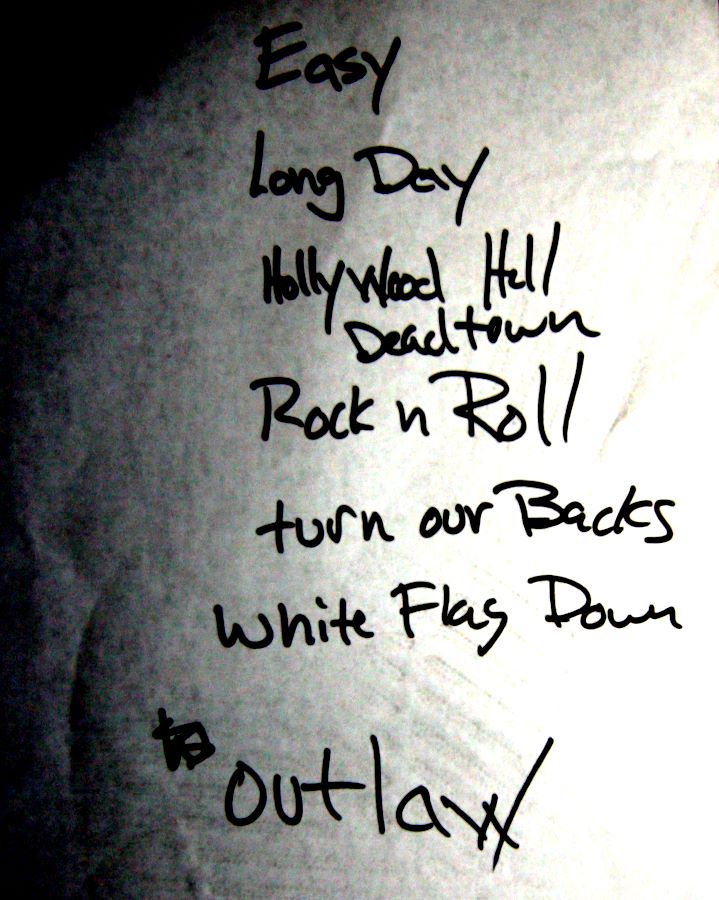 Easy
Long Day
Hollywood Hill
Deadtown
Rock n Roll
turn our Backs
White Flag Down
outlaw